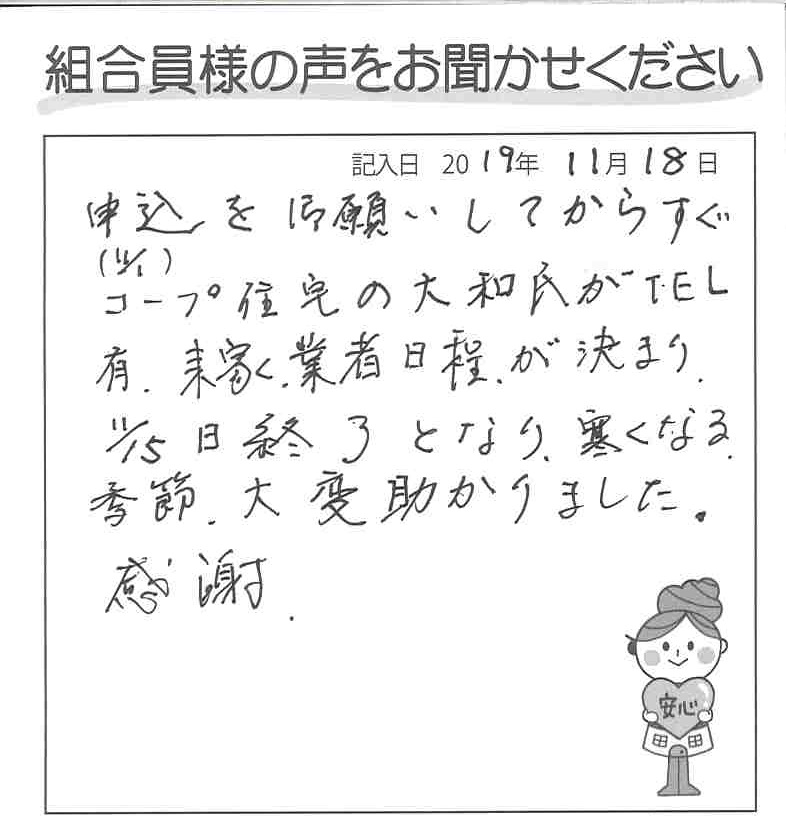 組合員様の声をお聞かせください
記入日 2019年 11月18日
申込を御願いしてからすぐ
(11/1)
コープ住宅の大和氏がTEL
有、来宅、業者日程、が決まり、
11/15日終了となり、寒くなる
季節、大変助かりました。
感謝.
安心